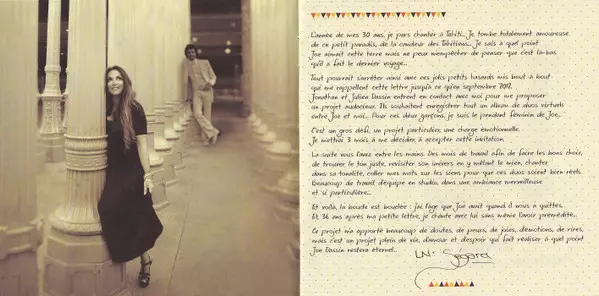 L'année de mes 30 ans, je pars chanter à Tahiti... Je tombe totalement amoureuse
de ce petit paradis, de la candeur des Tahitiens... Je sais à quel point
Joe aimait cette terre mais ne peux m'empêcher de penser que c'est là-bas
qu'il a fait le dernier voyage...
Tout pourrait s'arrêter ainsi avec ces jolis petits hasards mis bout à bout
qui me rappellent cette lettre jusqu'à ce qu'en septembre 2012,
Jonathan et Julien Dassin entrent en contact avec moi pour me proposer
un projet audacieux. Ils souhaitent enregistrer tout un album de duos virtuels
entre Joe et moi... Pour ces deux garçons, je suis le pendant féminin de Joe...
C'est un gros défi, un projet particulier, une charge émotionnelle.
Je mettrai 3 mois à me décider, à accepter cette invitation.
La suite vous l'avez entre les mains. Des mois de travail afin de faire les bons choix,
de trouver le ton juste, revisiter son univers en y mêlant le mien, chanter
dans sa tonalité, coller mes mots sur les siens pour que ces duos soient bien réels.
Beaucoup de travail d'équipe en studio, dans une ambiance merveilleuse
et si particulière...
Et voilà, la boucle est bouclée : j'ai l'âge que Joe avait quand il nous a quittés.
Et 36 ans après ma petite lettre, je chante avec lui sans même l'avoir prémédité...
Ce projet m'a apporté beaucoup de doutes, de peurs, de joies, d'émotions, de rires,
mais c'est un projet plein de vie, d'amour et d'espoir qui fait réaliser à quel point
Joe Dassin restera éternel...
Ségara